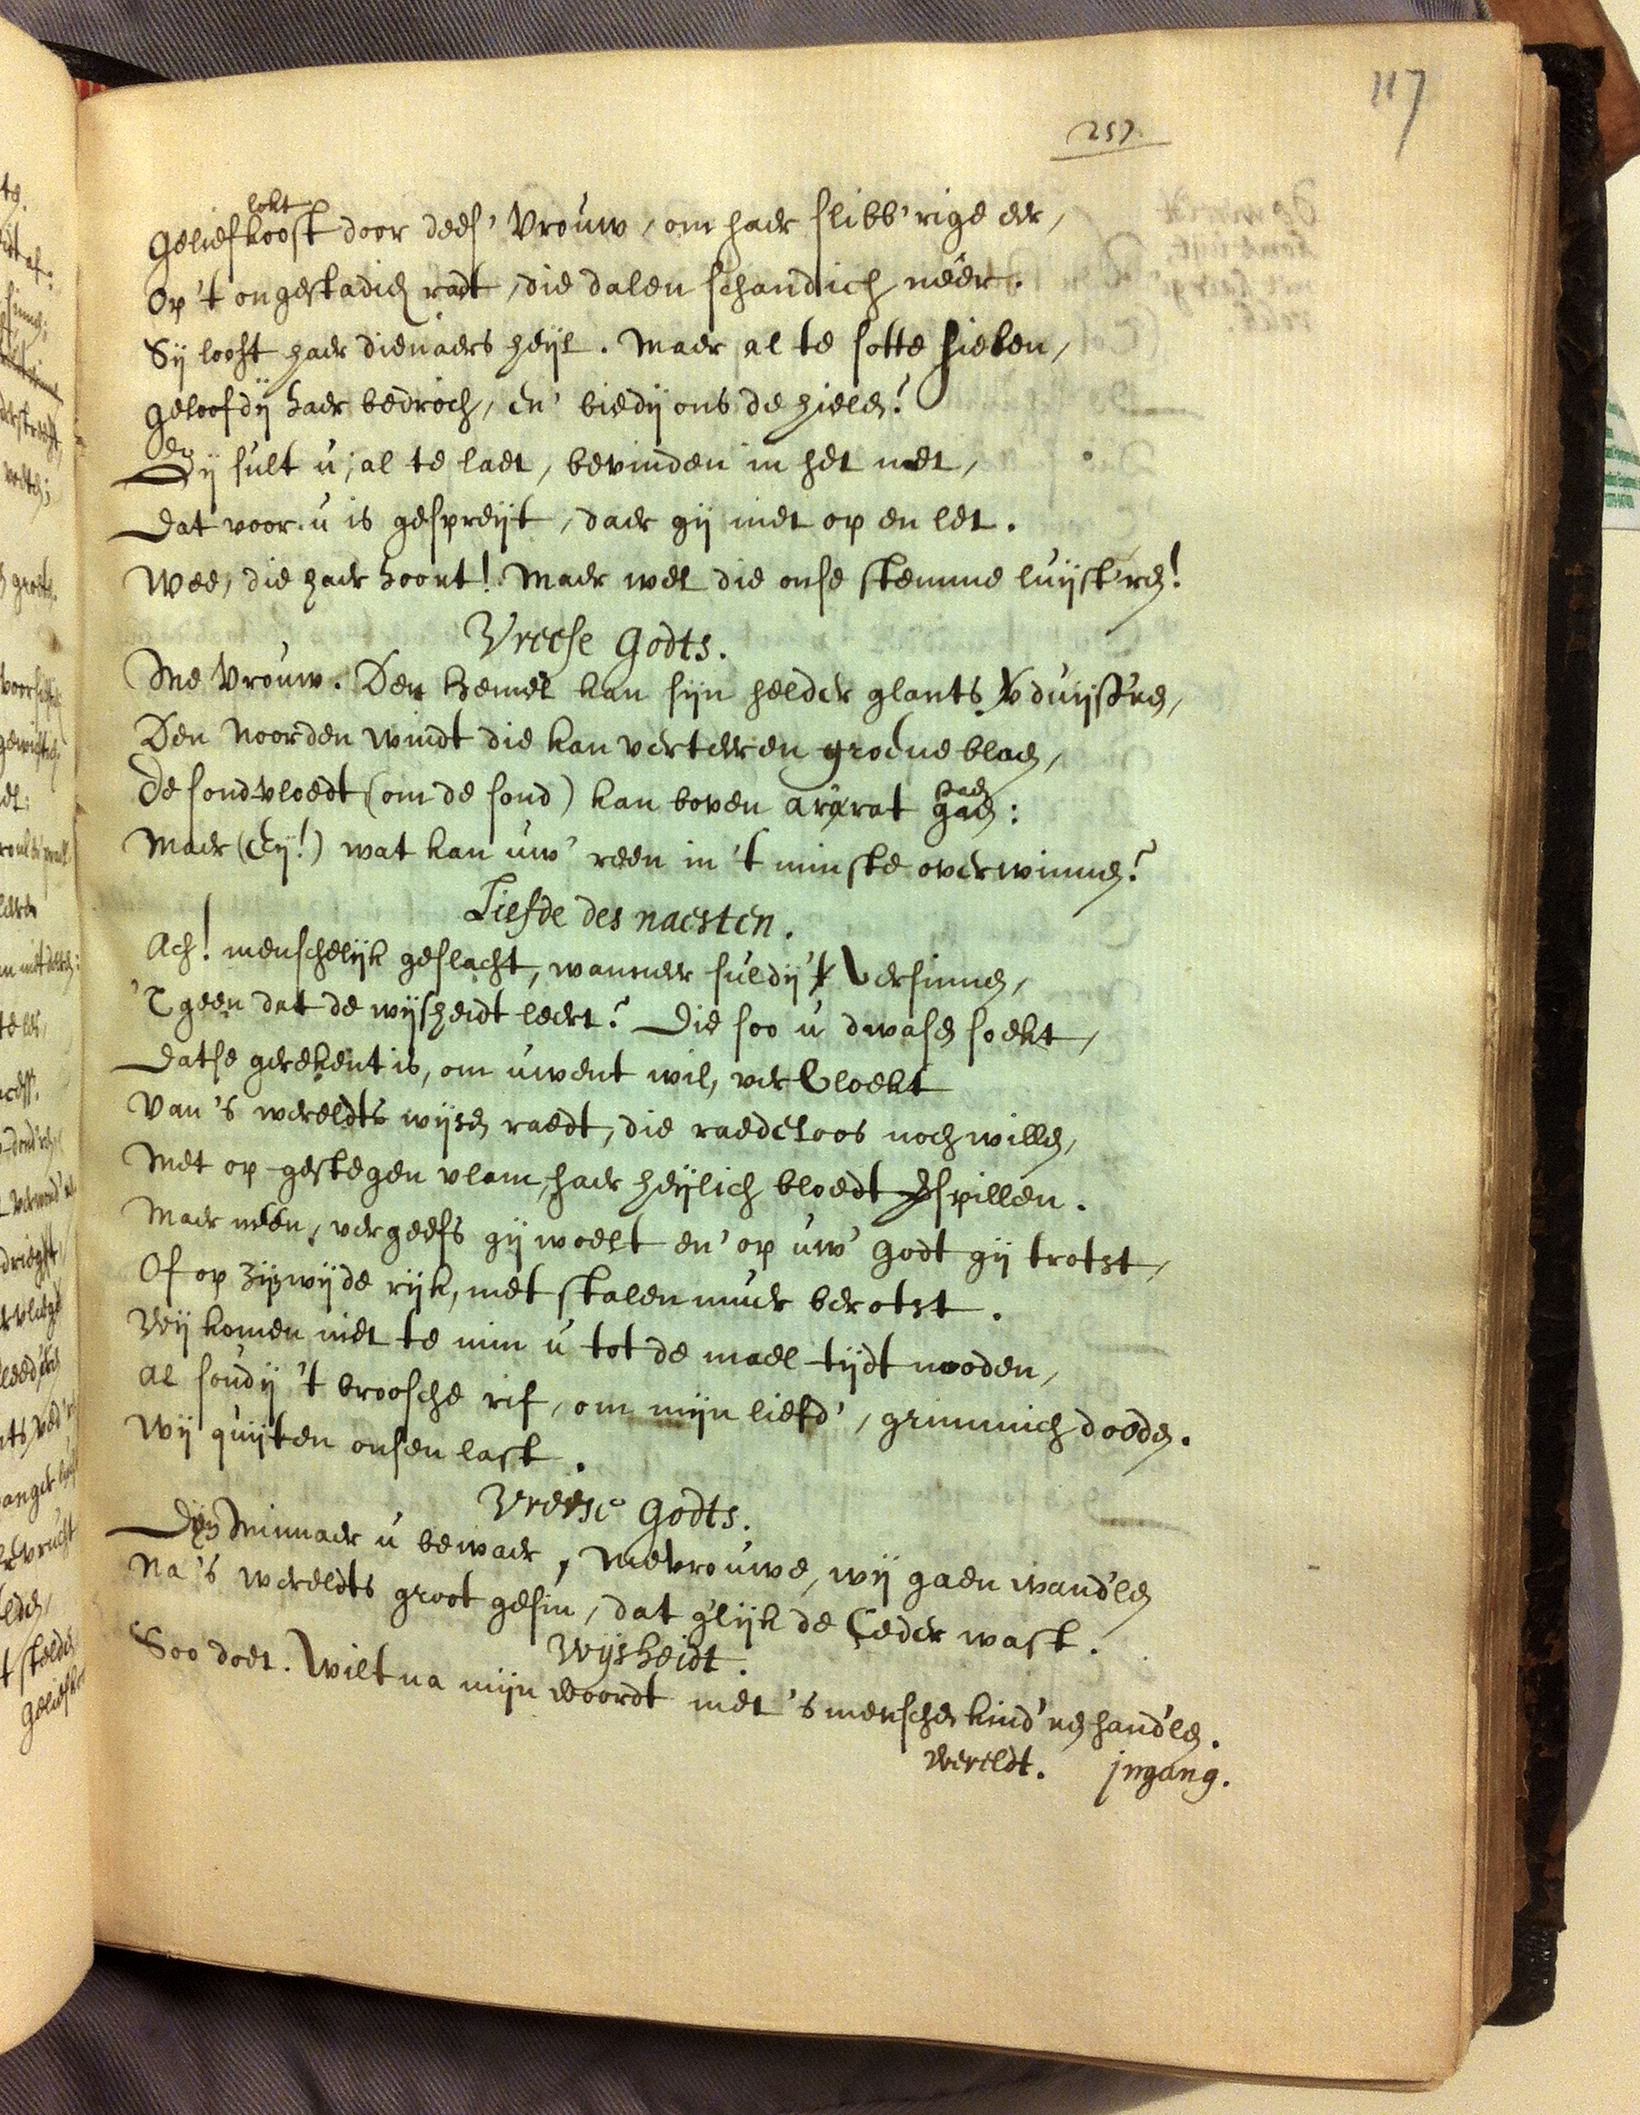 117
257
lokt
Geliefkoost door dees' Vrouw, om haer slibb'rige eer,
Op 't ongestadich radt, die dalen schandich néér.
Sij looft haer dienaers heijl. Maer al te sotte sielen,
Geloofdij haer bedroch, en' biedij ons de hielen?
Gij sult u, al te laet, bevinden in het net,
Dat voor u is gespreijt, daer gij niet op en let.
Wee, die haer hoort! Maer wel die onse stemme luijst'ren!
Vreese Godts.
Me Vrouw. Den hemel kan sijn helder glants verduijst'ren,
Den Noorden windt die kan verteeren groene blaen,
De sondvloedt (om de sond) kan boven ararat gaen:
Maer (Eij!) wat kan uw' reen in 't minste overwinnen?
Liefde des naesten.
Ach! menschelijk geslacht, wanneer suldij Versinnen,
'T geen dat de wijsheidt leert? Die soo u dwasen soekt,
Datse gerekent is, om uwent wil, vervloekt
Van 's wereldts wijsen raedt, die raedeloos noch willen,
Met op-gestegen vlam, haer heijlich bloedt spillen.
Maer neen, vergeefs gij woelt en' op uw' Godt gij trotst,
Of op zijn wijde rijk, met stalen muer berotst.
Wij komen niet te min u tot de mael-tijdt nooden,
Al soudij 't broosche rif, om mijn liefd', grimmich dooden.
Wij quijten onsen last.
Vreese Godts.
Dijn Minnaer u bewaer, Mevrouwe, wij gaen wand'len
Na 's wereldts groot gesin, dat g'lijk de Ceder wast.
Wijsheidt.
Soo doet. Wilt na mijn woordt met 's menschen kind'ren hand'len.
Wereldt. jngang.